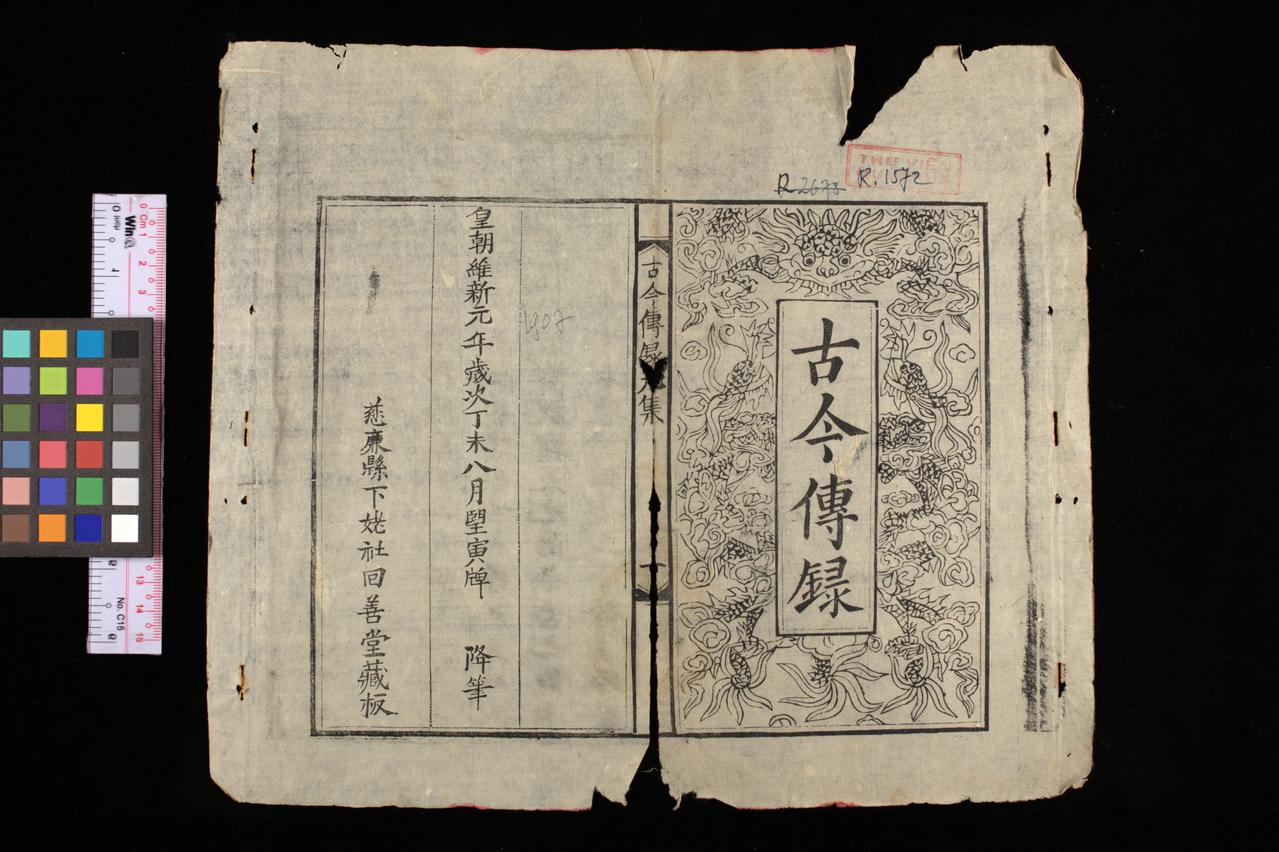 R 2678 R. 1572
THƯ VIỆN
古今傳録
古今傳録
集
一
1907
皇朝維新元年歲次丁未八月朢寅牌 降筆
慈廉縣下姥社回善堂藏板